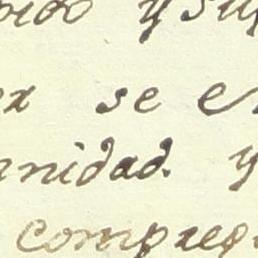 pido y su
ex se e
nidad. y
compreg